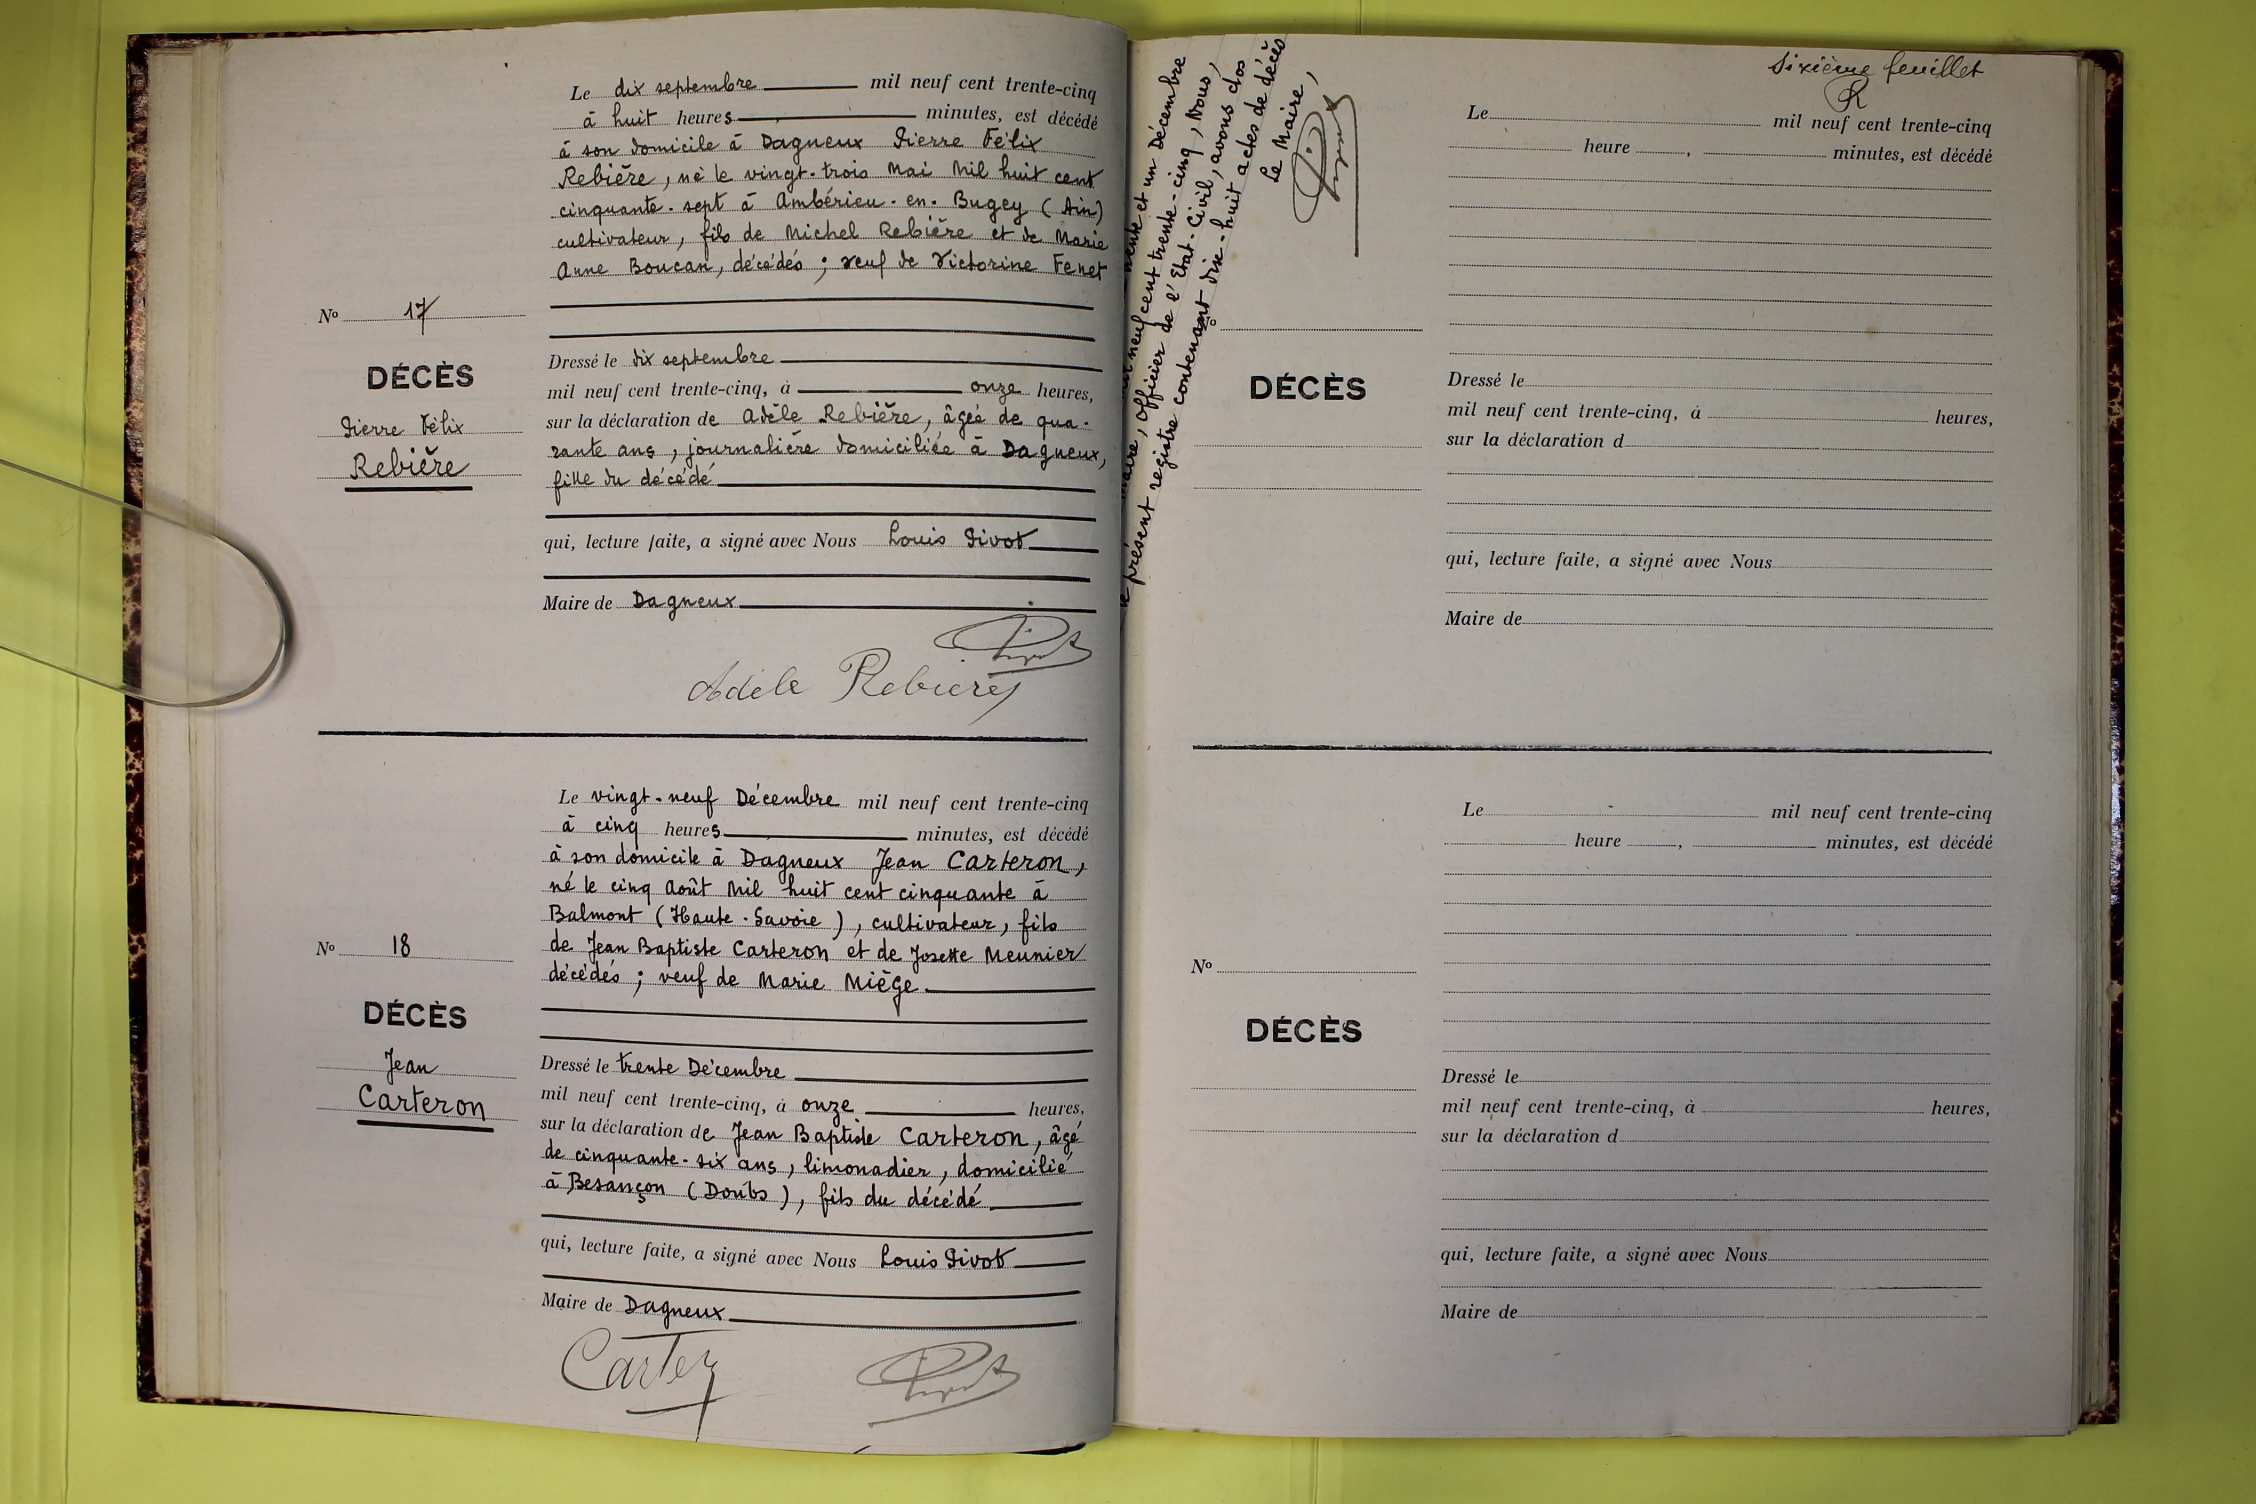 Le dix septembre mil neuf cent trente-cinq
à huit heures minutes, est décédé
à son domicile à Dagneux Pierre Félix
Rebière, né le vingt-trois Mai Mil huit cent
cinquante-sept à Ambérieu-en-Bugey (Ain)
cultivateur, fils de Michel Rebière et de Marie
Anne Boucan, décédés ; veuf de Victorine Fenet
No 17
DÉCÈS
Pierre Félix
Rebière
Dressé le dix septembre
mil neuf cent trente-cinq, à onze heures,
sur la déclaration de Adèle Rebière, âgée de qua-
rante ans, journalière domiciliée à Dagneux,
fille du décédé
qui, lecture faite, a signé avec Nous Louis Pivot
Maire de Dagneux
Pivot
Adèle Rebière
Le vingt-neuf Décembre mil neuf cent trente-cinq
à cinq heures minutes, est décédé
à son domicile à Dagneux Jean Carteron,
né le cinq Août Mil huit cent cinquante à
Balmont (Haute-Savoie), cultivateur, fils
de Jean Baptiste Carteron et de Josette Meunier
décédés ; veuf de Marie Miège.
No 18
DÉCÈS
Jean
Carteron
Dressé le trente Décembre
mil neuf cent trente-cinq, à onze heures,
sur la déclaration de Jean Baptiste Carteron, âgé
de cinquante-six ans, limonadier, domicilié
à Besançon (Doubs), fils du décédé
qui, lecture faite, a signé avec Nous Louis Pivot
Maire de Dagneux
Pivot
et un Décembre
neuf cent trente-cinq, Nous,
Maire, Officier de l'Etat-Civil, avons clos
le présent registre contenant dix-huit actes de décès
Le Maire,
Pivot
Sixième feuillet
R
Le mil neuf cent trente-cinq
heure , minutes, est décédé
DÉCÈS
Dressé le
mil neuf cent trente-cinq, à heures,
sur la déclaration d
qui, lecture faite, a signé avec Nous
Maire de
Le mil neuf cent trente-cinq
heure , minutes, est décédé
No
DÉCÈS
Dressé le
mil neuf cent trente-cinq, à heures,
sur la déclaration d
qui, lecture faite, a signé avec Nous
Maire de